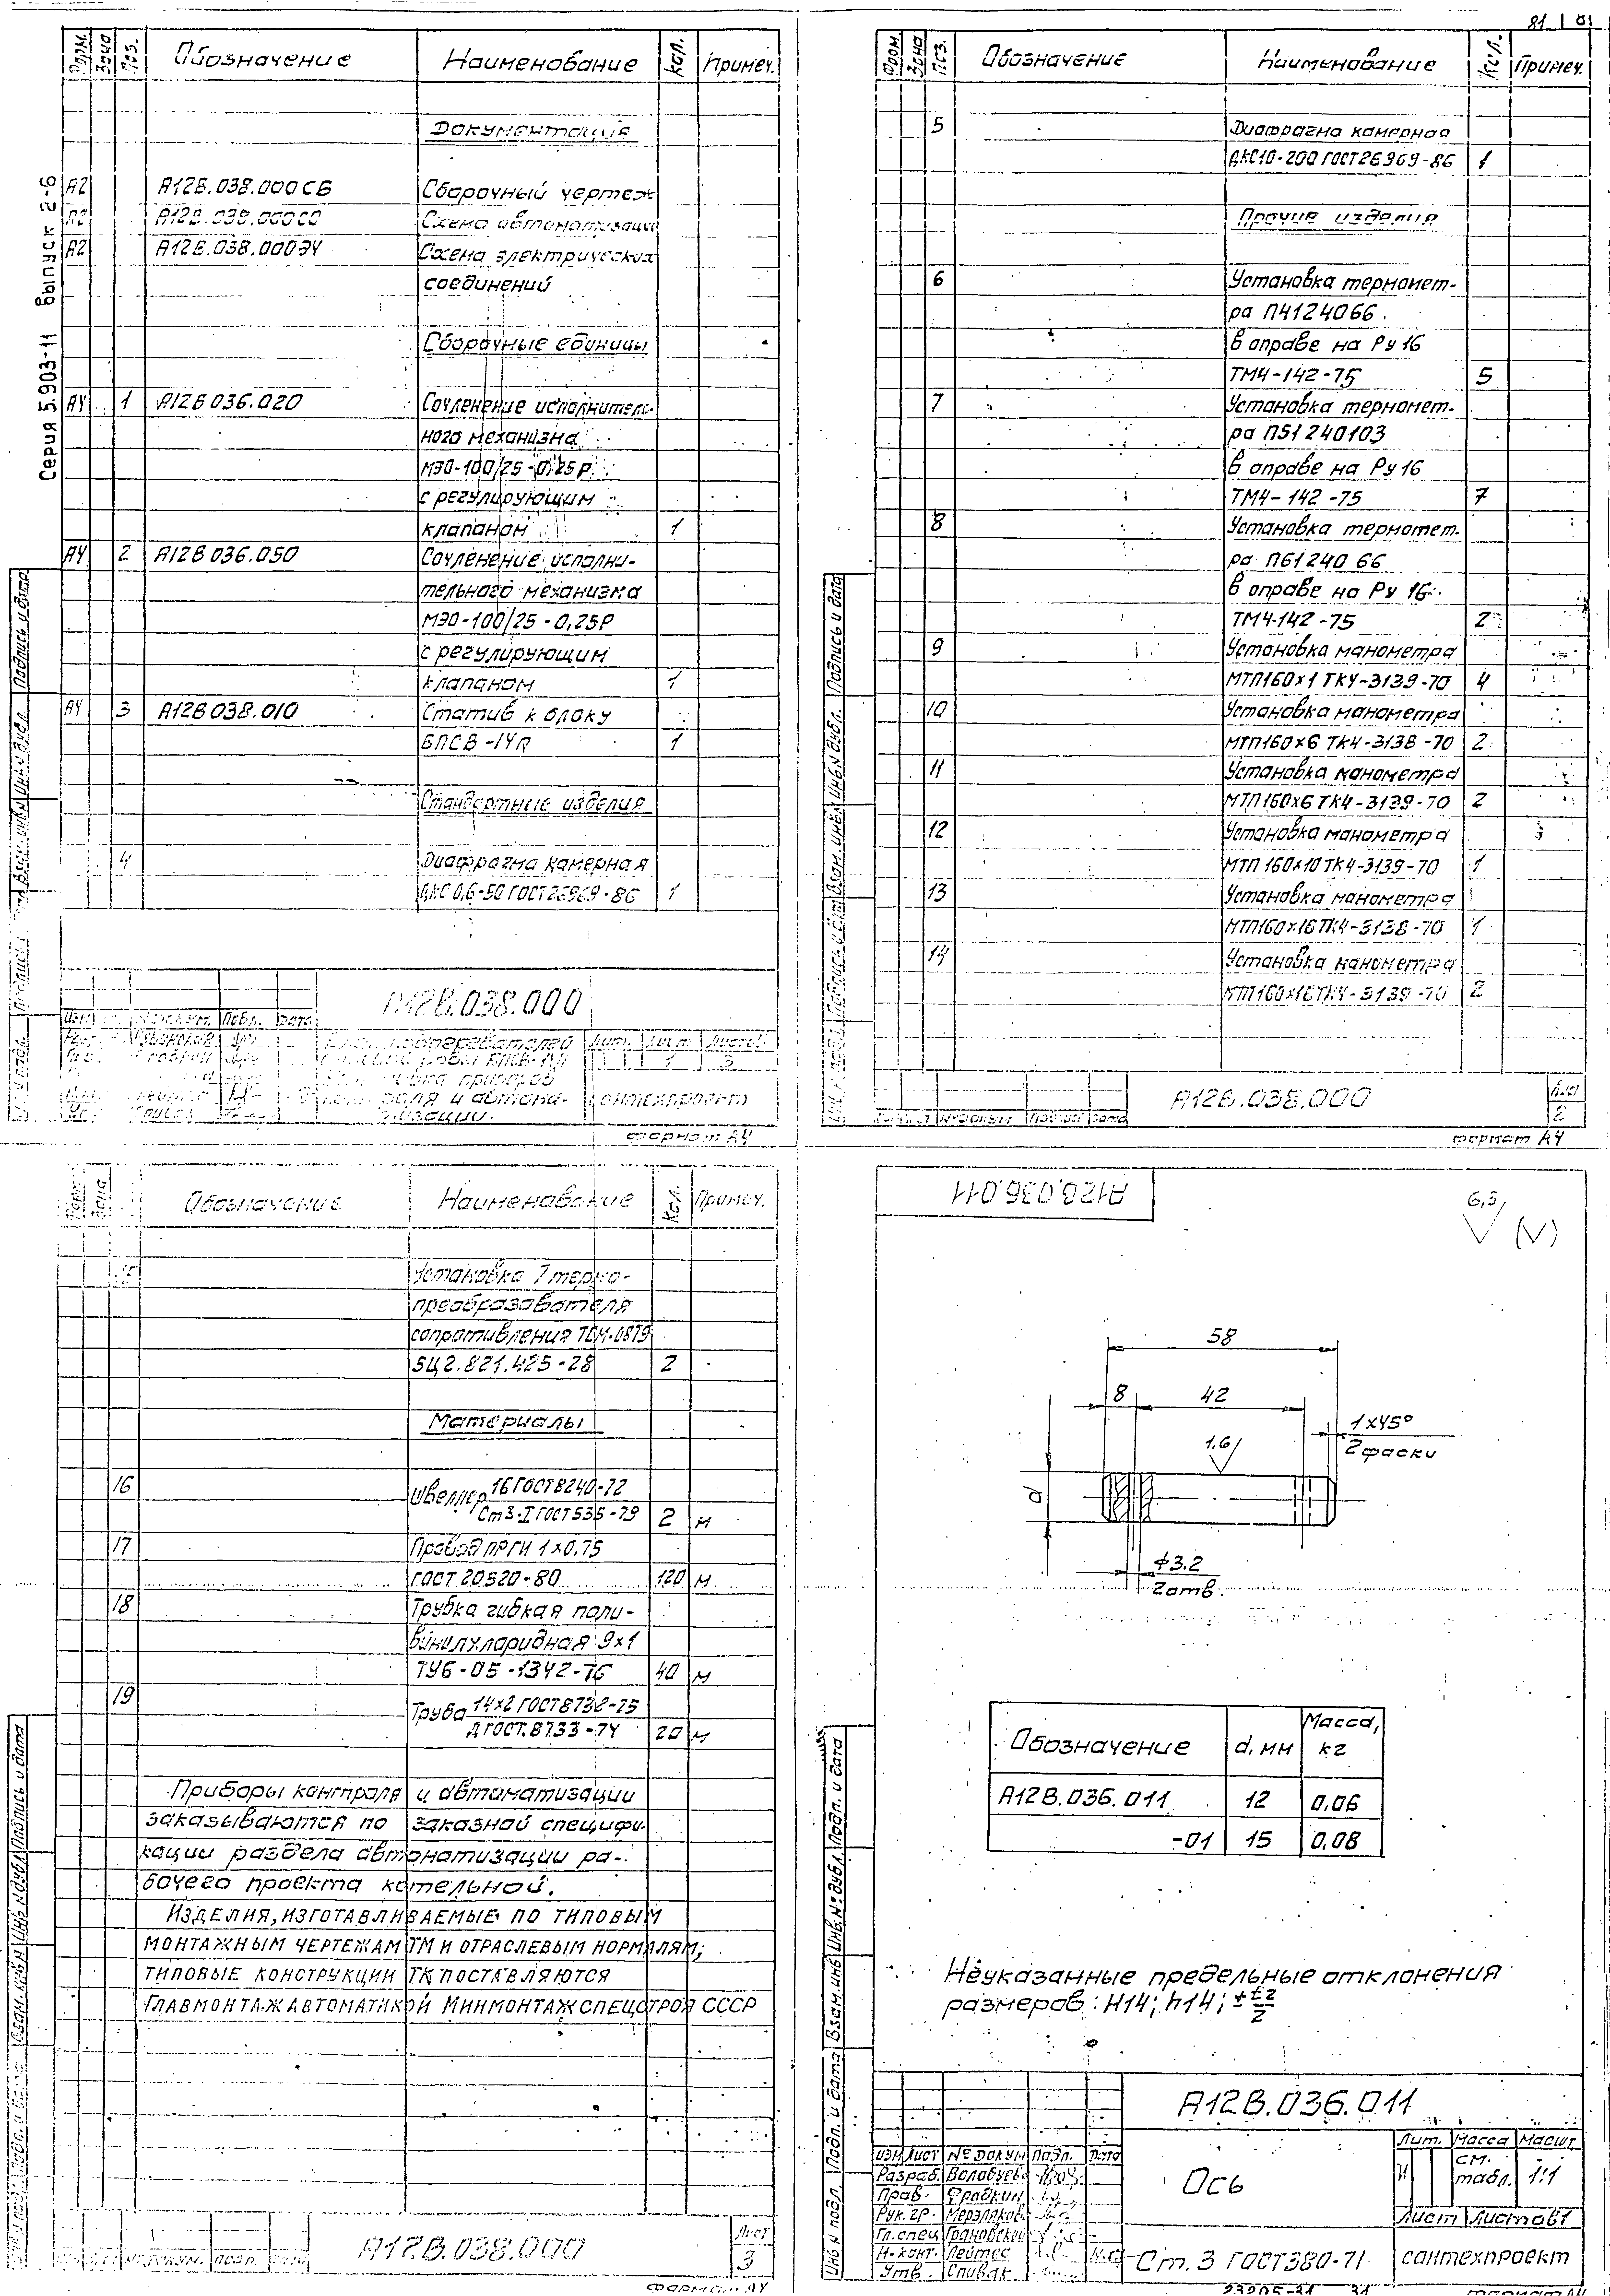 81
Серия 5.903-11 Выпуск 2-6
Форм. Зона Поз. Обозначение Наименование Кол. Примеч.
Документация
А2 А12В.038.000 СБ Сборочный чертеж
А2 А12В.038.000 СО Схема автоматизации
А2 А12В.038.000Э4 Схема электрических
соединений
Сборочные единицы
А4 1 А12В 036.020 Сочленение исполнитель-
ного механизма
МЭО-100/25-0,25Р
с регулирующим
клапаном 1
А4 2 А12В 036.050 Сочленение исполни-
тельного механизма
МЭО-100/25-0,25Р
с регулирующим
клапаном 1
А4 3 А12В 038.010 Статив к блоку
БПСВ-14П 1
Стандартные изделия
4 Диафрагма камерная
ДКС 0,6-50 ГОСТ 26969-86 1
А12В.038.000
Лит. Лист Листов
1 3
Сантехпроект
Формат А4
Подпись и дата
Форм. Зона Поз. Обозначение Наименование Кол. Примеч.
5 Диафрагма камерная
ДКС10-200 ГОСТ 26969-86 1
Прочие изделия
6 Установка термомет-
ра П4124066
в оправе на Ру 16
ТМ4-142-75 5
7 Установка термомет-
ра П51240103
в оправе на Ру 16
ТМ4-142-75 7
8 Установка термомет-
ра П6124066
в оправе на Ру 16
ТМ4-142-75 2
9 Установка манометра
МТП160х1 ТК4-3139-70 4
10 Установка манометра
МТП160х6 ТК4-3138-70 2
11 Установка манометра
МТП160х6 ТК4-3139-70 2
12 Установка манометра
МТП 160х10 ТК4-3139-70 1
13 Установка манометра
МТП160х16 ТК4-3138-70 1
14 Установка манометра
МТП160х16 ТК4-3139-70 2
А12В.038.000
Лист
2
Формат А4
Подпись и дата
Зона Обозначение Наименование Кол. Примеч.
15 Установка термо-
преобразователя
сопротивления ТСМ-0879
5Ц2.821.425-28 2
Материалы
16 Швеллер 16 ГОСТ 8240-72
Ст3-I ГОСТ 535-79 2 м
17 Провод ПРГИ 1х0,75
ГОСТ 20520-80 120 м
18 Трубка гибкая поли-
винилхлоридная 9х1
ТУ6-05-1342-76 40 м
19 Труба 14х2 ГОСТ 8732-75
Д ГОСТ.8733-74 20 м
Приборы контроля и автоматизации
заказываются по заказной специфи-
кации раздела автоматизации ра-
бочего проекта котельной.
Изделия, изготавливаемые по типовым
монтажным чертежам ТМ и отраслевым нормалям;
типовые конструкции ТК поставляются
Главмонтажавтоматикой Минмонтажспецстроя СССР
А12В.038.000
Лист
3
Формат А4
А12В.036.011
6,3 (√)
58
8 42
1х45°
2 фаски
1,6
d
ϕ3.2
2 отв.
Обозначение d, мм Масса, кг
А12В.036.011 12 0,06
-01 15 0,08
Неуказанные предельные отклонения
размеров: H14; h14; ± t2/2
Подп. и дата
Инв.№ дубл.
Взам.инв
Подп. и дата
Инв № подл.
А12В.036.011
Изм Лист № докум Подп. Дата
Разраб. Волобуев
Пров. Фрадкин
Рук.гр. Мерзляков
Гл.спец Грановский
Н-конт. Лейтес
Утв. Спивак
Ось
Лит. Масса Масшт
И см. табл. 1:1
Лист Листов 1
Ст.3 ГОСТ 380-71
сантехпроект
23205-31 31
Формат А4